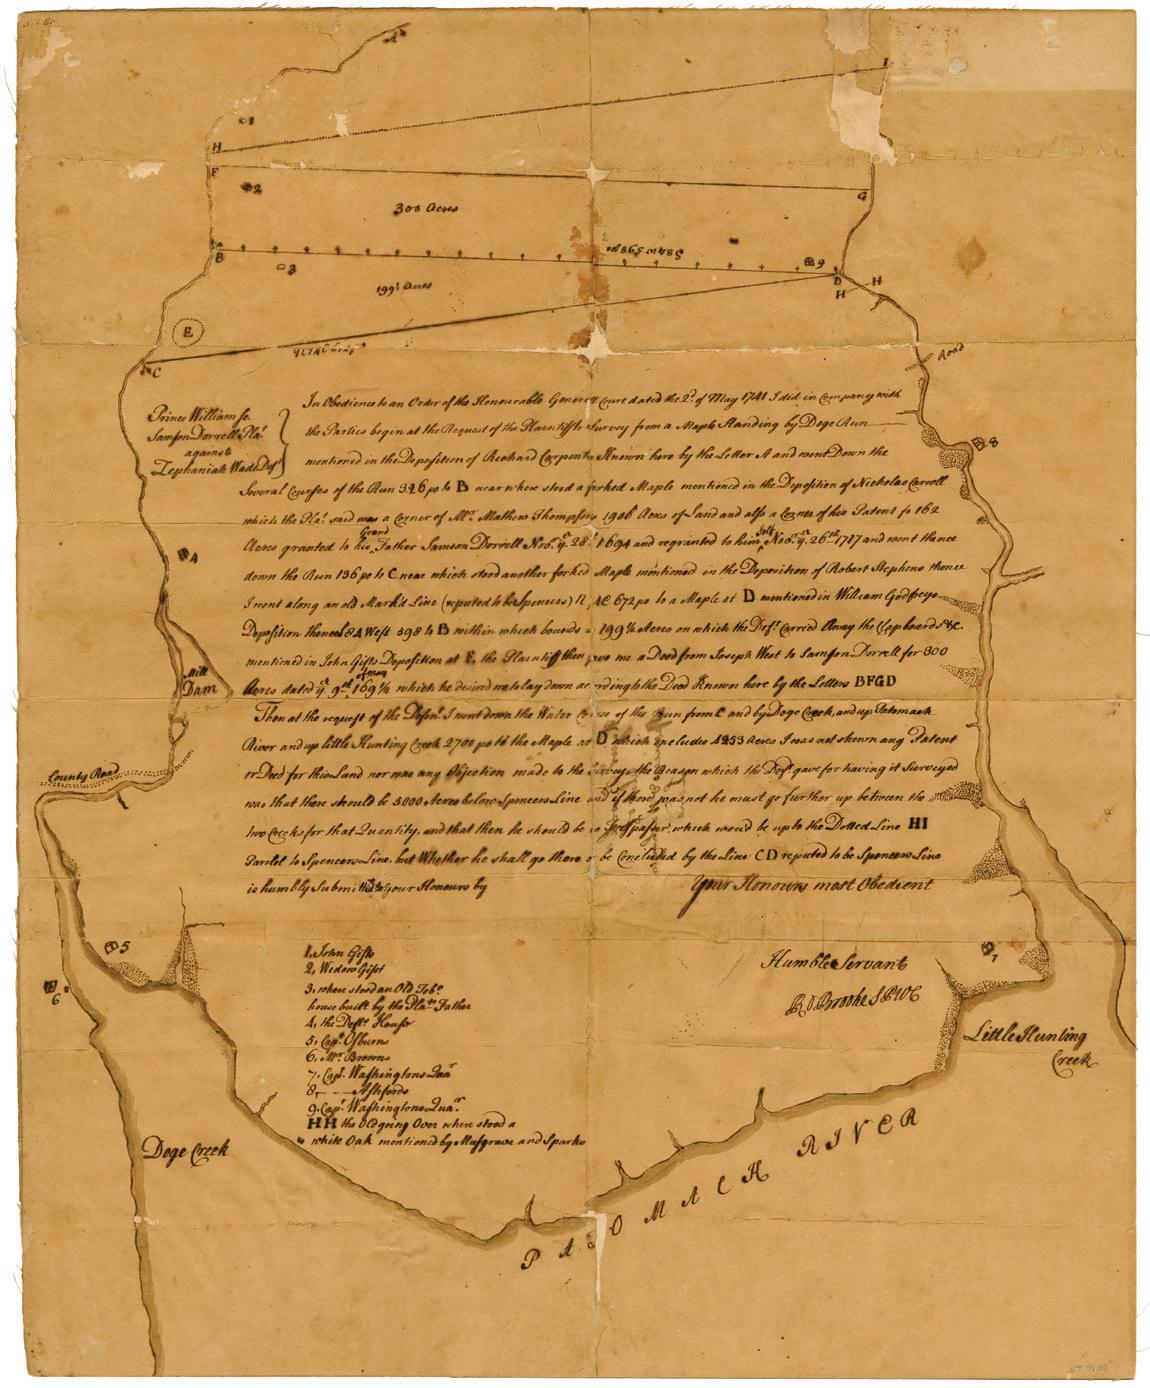 A
I
1
H
F
2
G
300 Acres
S84W 598 po
B
3
9
D
H
H
199½ Acres
E
C
Road
Prince William sc.
Samson Darrell Plat.
against
Zephaniah Wade Deft.
In Obedience to an Order of the Honourable General Court dated the 2d. of May 1741 I did in Company with
the Parties begin at the Request of the Plaintiff to Survey from a Maple Standing by Doge Run
mentioned in the Deposition of Richard Carpenter Known here by the Letter A and went Down the
Several Courses of the Run 326 po to B near where stood a forked Maple mentioned in the Deposition of Nicholas Carroll
which the Plat. said was a Corner of Mr. Mathew Thompsons 1906 Acres of Land and also a Corner of his Patent fo 162
Acres granted to his Grand Father Samson Darrell Novr. ye. 28t. 1694 and regranted to him self Novr. ye. 26th 1717 and went thence
down the Run 136 po to C near which stood another forked Maple mentioned in the Deposition of Robert Stephens thence
I went along an old Mark'd Line (reputed to be Spencers) 672 po to a Maple at D mentioned in William Godfreys
Deposition thence 84 West 598 to B within which bounds 199½ Acres on which the Deft. Carried Away the Clapboards &c.
mentioned in John Gists Deposition at E, the Plaintiff then me a Deed from Joseph West to Samson Dorrell for 300
Acres dated ye. 9th of may 169½ which he desired me to lay down according to the Deed Known here by the Letters BFGD
Then at the request of the Defent. I went down the Water Course of the Run from C and by Doge Creek, and up Patomack
River and up little Hunting Creek 2700 po to the Maple at D which includes 4253 Acres I was not shewn any Patent
or Deed for this Land nor was any Objection made to the Survey the Reason which the Deft. gave for having it Surveyed
was that there should be 5000 Acres below Spencers Line and if there was not he must go further up between the
two Creeks for that Quantity, and that then he should be no Trespasser, which would be up to the Dotted Line HI
Parelel to Spencers Line, but Whether he shall go there or be Concluded by the Line CD reputed to be Spencers Line
is humbly Submitted to your Honours by
Your Honours most Obedient
Humble Servant
R. O. Brooke S.PWC
8
4
Mill
Dam
County Road
5
6
7
1, John Gists
2, Widow Gist
3, where stood an Old Tobo.
house built by the Plats. Father
4, the Defts. House
5, Capt. Osburns
6, Mr. Browns
7, Capt. Washingtons Quar.
8, - - - Ashfords
9, Capt. Washingtons Quar.
HH the old going Over where stood a
white Oak mentioned by Musgrave and Sparks
Little Hunting
Creek
Doge Creek
PATOMACK RIVER